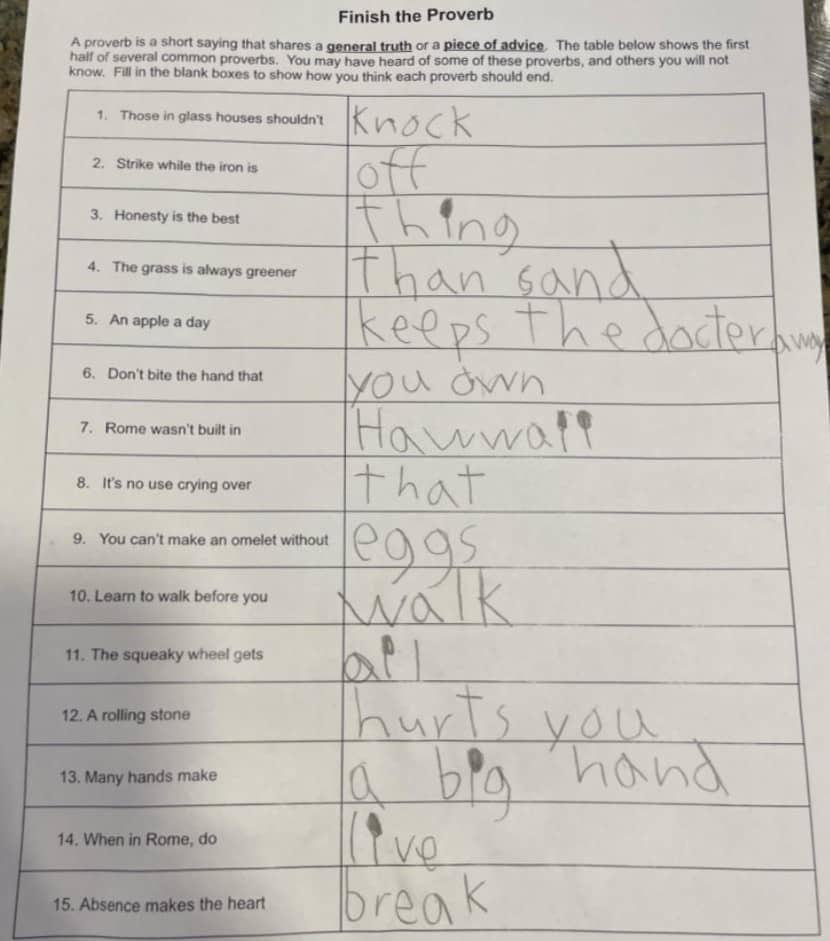 Finish the Proverb
A proverb is a short saying that shares a general truth or a piece of advice. The table below shows the first
half of several common proverbs. You may have heard of some of these proverbs, and others you will not
know. Fill in the blank boxes to show how you think each proverb should end.
1. Those in glass houses shouldn't Knock
2. Strike while the iron is off
3. Honesty is the best thing
4. The grass is always greener than sand
5. An apple a day keeps the docter away
6. Don't bite the hand that you own
7. Rome wasn't built in Hawwaii
8. It's no use crying over that
9. You can't make an omelet without eggs
10. Learn to walk before you walk
11. The squeaky wheel gets oil
12. A rolling stone hurts you
13. Many hands make a big hand
14. When in Rome, do live
15. Absence makes the heart break